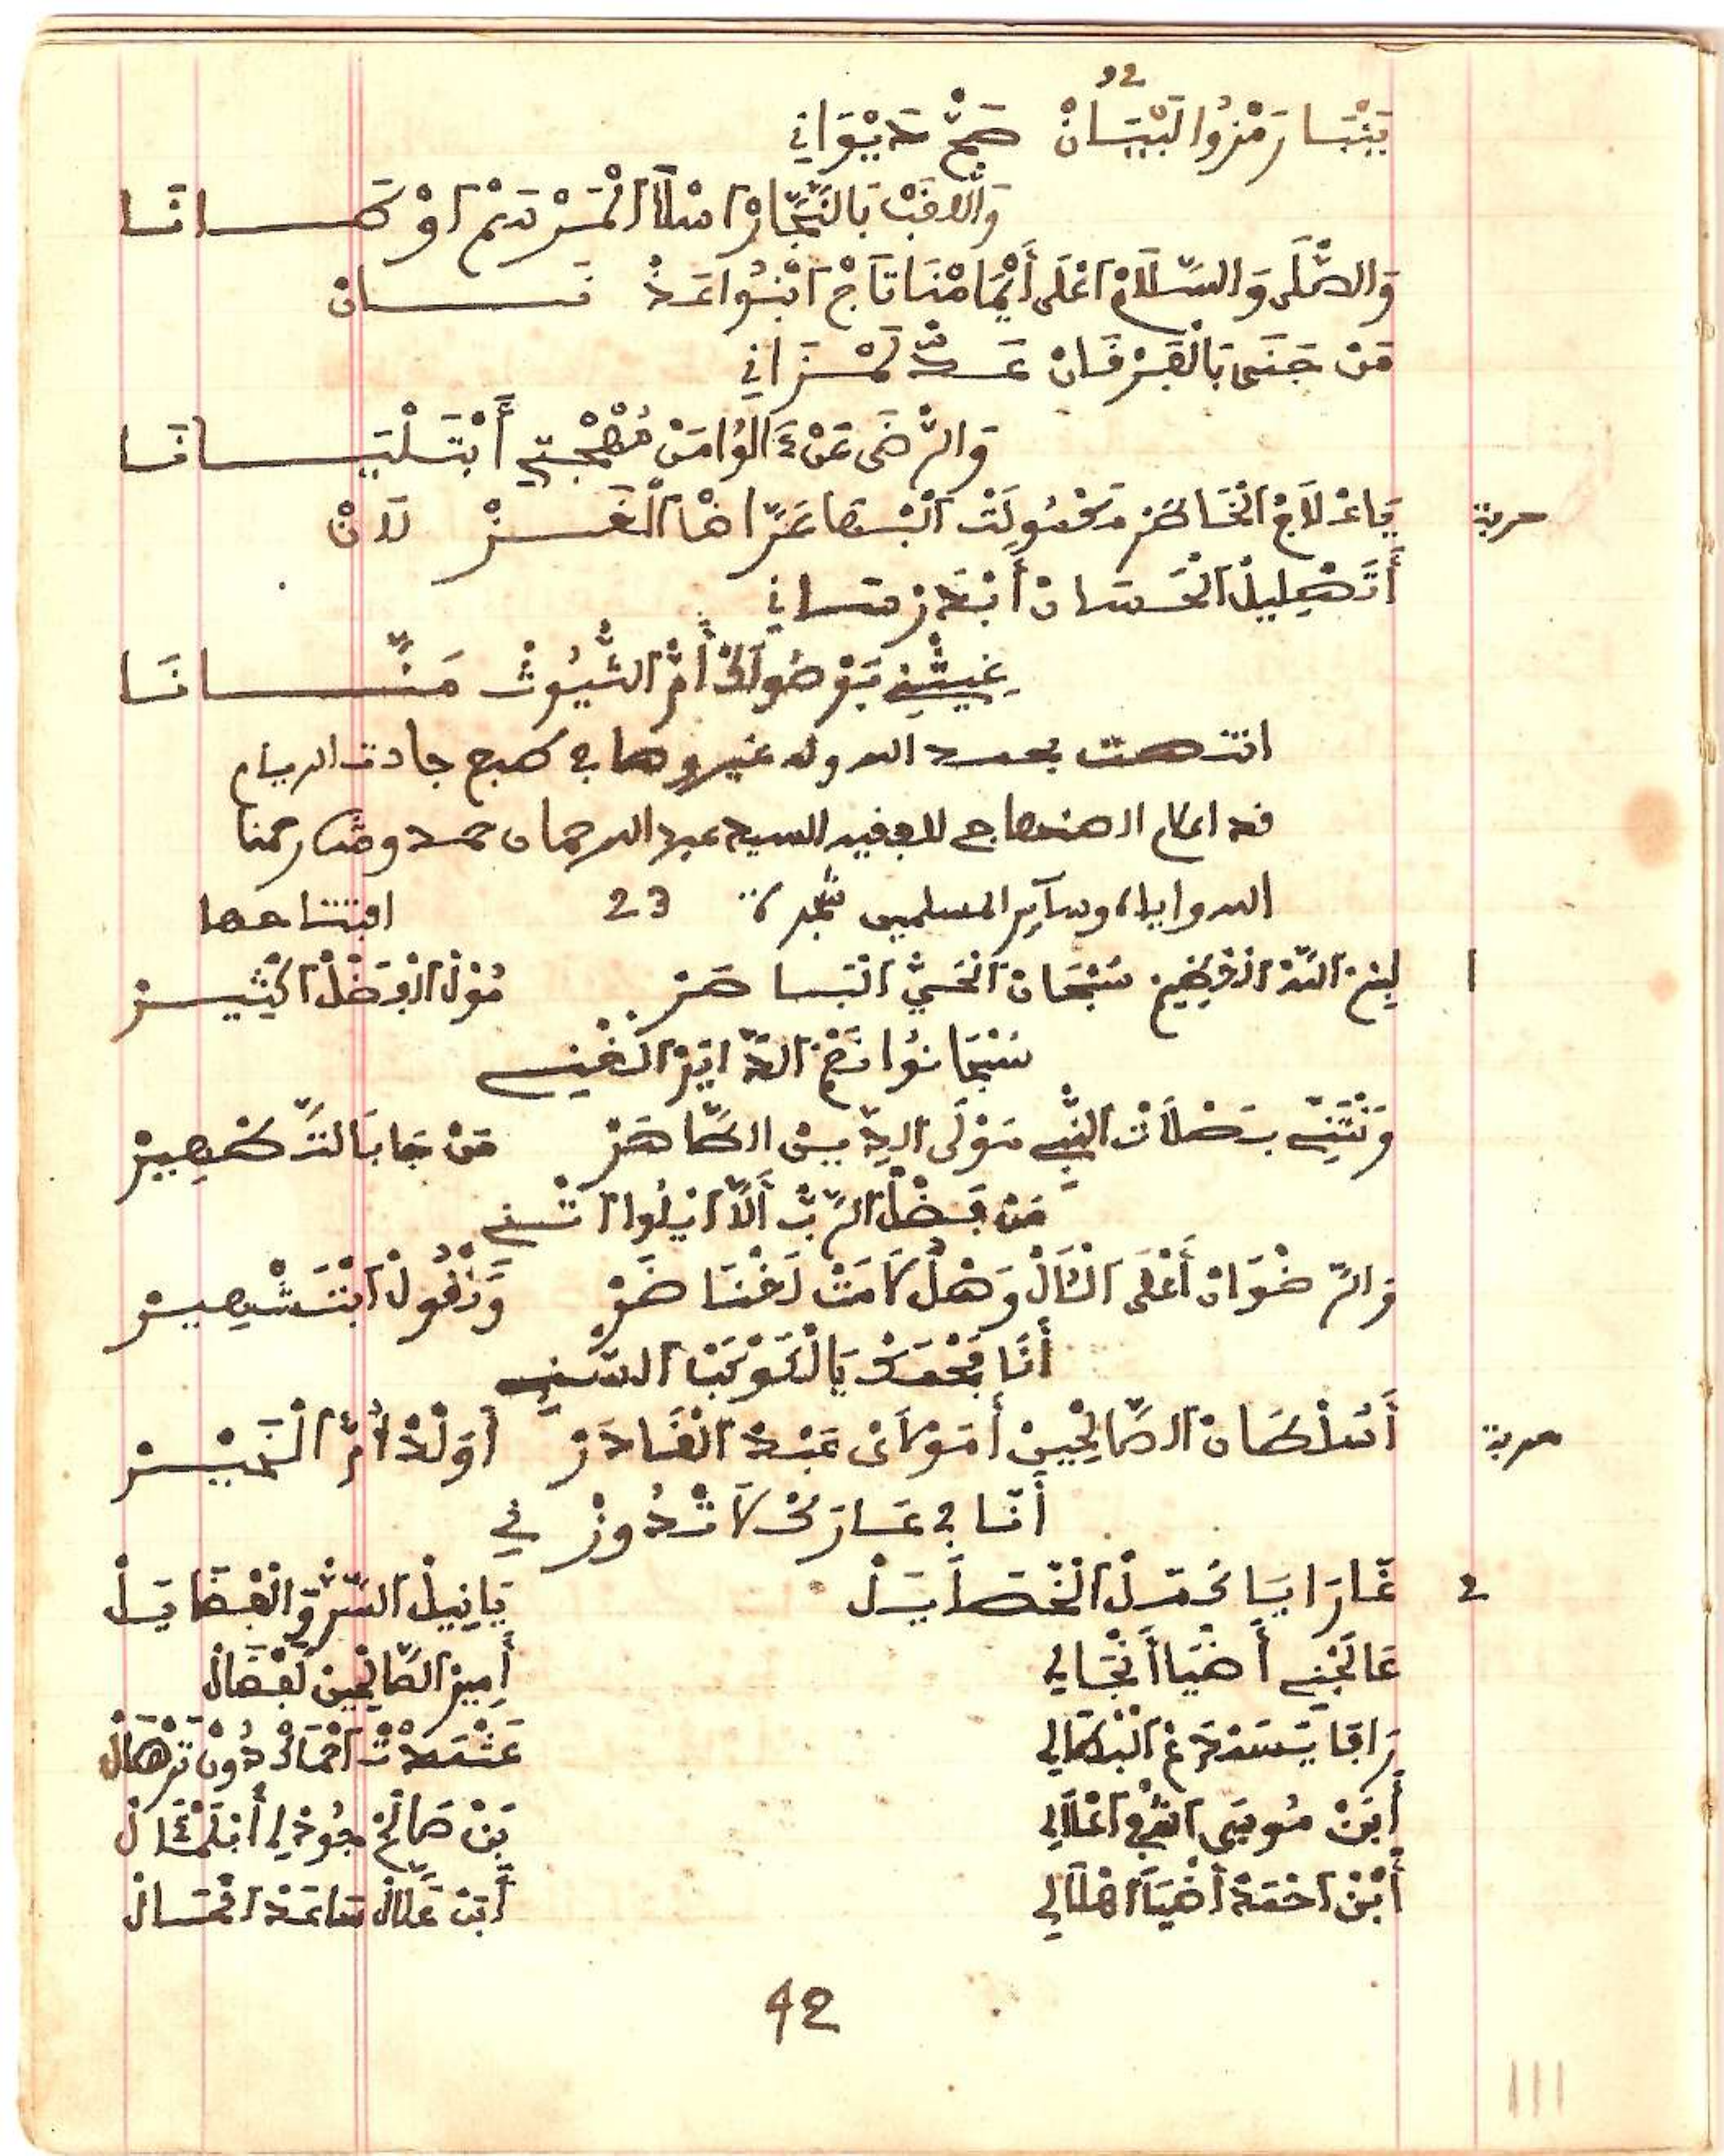 32
يَنْبَا رَمْزُوا لَبْيَانْ صَحّْ دِيوَانِي
وَاللَّقَبْ بَالنَّجَّارْ اسْلَا الْمَرْسَمْ اوْ كَانَا
وَالصْلَى وَالسَّلَامْ اعْلَى أَيْمَامْنَا تَاجْ ابْنُوا عَدْنَانْ
مَنْ جَنَى بَالْفَرْقَانْ عَدّْ لَمْزَانِي
وَالرْضَى عَنْ ءَالُوا مَنْ مُهْجْتِي أَبْتَلْيَانَا
حربة
يَاعْلَاجْ الْخَاطَرْ مَحْبُولَتْ الْبْهَا عَزَّاهَا الْغَزْلَانْ
أَتَهْلِيلْ الْحَسَانْ أَبْدَرْ سَانِي
غِيثْنِي بَوْصُولَكْ أُمّْ الشُّيُوثْ مَنَّانَا
انتهت بحمد الله وله غيرها في صبح جادت الريام
قد اعلم الاحتياج للفقيه السيد عبد الرحمان حمد وشكر رحمنا
الله واياه وسآير المسلمين 23 افتتاحها
1
لِيغْ السّْرْ الْفْخِيمْ سُبْحَانْ الْحَيّْ الْبَاهَرْ مُولْ الْفَضْلْ الْكْثِيرْ
سُبْحَانُوا نَعْمْ الدَّايَمْ الْغْنِي
وَنْثَنِّي بَصْلَاتْ النّْبِي مَوْلَى الدِّينْ الطَّاهَرْ مَنْ جَا بَالتَّطْهِيرْ
مَنْ فَضْلْ الرَّبّْ أَلَّا ايْلُوا اثْنِي
وَالرَّضْوَانْ أَعْلَى الْآلْ وَهْلْ لَامَتْ لَخْنَاصَرْ وَنْقُولْ ابْتَشْهِيرْ
أَنَا فَحْمَاكْ يَالْكَوْكَبْ السّْنِي
حربة
أَسُلْطَانْ الصَّالْحِينْ أَمَوْلَايْ عَبْدْ الْقَادَرْ أَوَلْدْ أُمّْ الْخَيْرْ
أَنَا فِي عَارَكْ لَا تْدُوزْ فِي
2
غَارَا يَا كَمَلْ الْخْصَايَلْ يَا نِيلْ السّْرّْ وَالْفْضَايَلْ
عَالَجْنِي أَضْيَا أَنْجَالِي أَمِيرْ الصَّالْحِينْ لَفْضَالْ
رَاقَا يَسْتَدْرَغْ الْبْطَالِي عَشْعَدْتْ احْمَاكْ دُونْ تَرْهَالْ
أَبَنْ مُوسَى اشْرْفْ اعْلَالِي بَنْ صَالَحْ جُودْ لِي أَبْلَمْثَالْ
أَبْنْ احْمَدْ أَضْيَا اهْلَالِي أَبَنْ عَلَّالْ سَاعَدْ الْحَالْ
42
111